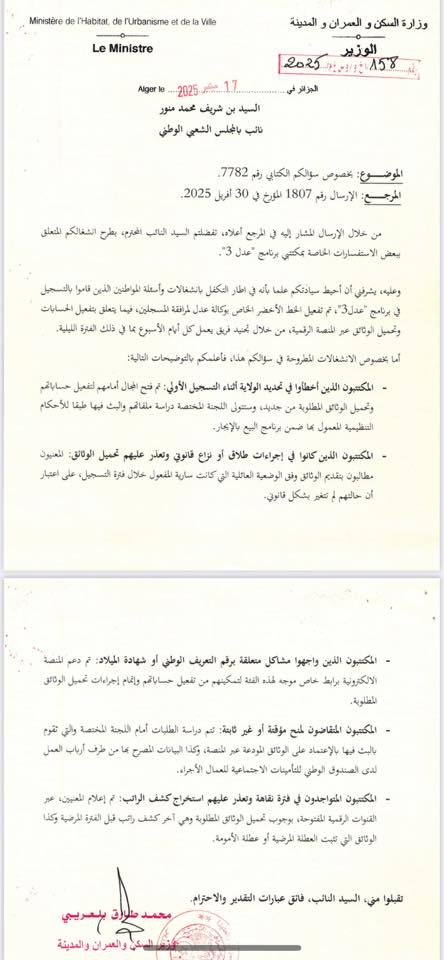 Ministère de l'Habitat, de l'Urbanisme et de la Ville
وزارة السكن و العمران و المدينة
Le Ministre
الوزير
158 2025
Alger le 17 2025 الجزائر في
السيد بن شريف محمد منور
نائب بالمجلس الشعبي الوطني
الموضوع: بخصوص سؤالكم الكتابي رقم 7782.
المرجع: الإرسال رقم 1807 المؤرخ في 30 أفريل 2025.
من خلال الإرسال المشار إليه في المرجع أعلاه، تفضلتم السيد النائب المحترم، بطرح انشغالكم المتعلق
ببعض الاستفسارات الخاصة بمكتتبي برنامج "عدل 3".
وعليه، يشرفني أن أحيط سيادتكم علما بأنه في اطار التكفل بانشغالات وأسئلة المواطنين الذين قاموا بالتسجيل
في برنامج "عدل3"، تم تفعيل الخط الأخضر الخاص بوكالة عدل لمرافقة المسجلين، فيما يتعلق بتفعيل الحسابات
وتحميل الوثائق عبر المنصة الرقمية، من خلال تجنيد فريق يعمل كل أيام الأسبوع بما في ذلك الفترة الليلية.
أما بخصوص الانشغالات المطروحة في سؤالكم هذا، فأعلمكم بالتوضيحات التالية:
- المكتتبون الذين أخطأوا في تحديد الولاية أثناء التسجيل الأولي: تم فتح المجال أمامهم لتفعيل حساباتهم
وتحميل الوثائق المطلوبة من جديد، وستتولى اللجنة المختصة دراسة ملفاتهم والبث فيها طبقا للأحكام
التنظيمية المعمول بها ضمن برنامج البيع بالإيجار.
- المكتتبون الذين كانوا في إجراءات طلاق أو نزاع قانوني وتعذر عليهم تحميل الوثائق: المعنيون
مطالبون بتقديم الوثائق وفق الوضعية العائلية التي كانت سارية المفعول خلال فترة التسجيل، على اعتبار
أن حالتهم لم تتغير بشكل قانوني.
- المكتتبون الذين واجهوا مشاكل متعلقة برقم التعريف الوطني أو شهادة الميلاد: تم دعم المنصة
الالكترونية برابط خاص موجه لهذه الفئة لتمكينهم من تفعيل حساباتهم وإتمام إجراءات تحميل الوثائق
المطلوبة.
- المكتتبون المتقاضون لمنح مؤقتة أو غير ثابتة: تتم دراسة الطلبات أمام اللجنة المختصة والتي تقوم
بالبث فيها بالإعتماد على الوثائق المودعة عبر المنصة، وكذا البيانات المصرح بها من طرف أرباب العمل
لدى الصندوق الوطني للتأمينات الاجتماعية للعمال الأجراء.
- المكتتبون المتواجدون في فترة نقاهة وتعذر عليهم استخراج كشف الراتب: تم إعلام المعنيين، عبر
القنوات الرقمية المفتوحة، بوجوب تحميل الوثائق المطلوبة وهي آخر كشف راتب قبل الفترة المرضية وكذا
الوثائق التي تثبت العطلة المرضية أو عطلة الأمومة.
تقبلوا مني، السيد النائب، فائق عبارات التقدير والاحترام.
محمد طارق بلعريبي
وزير السكن والعمران والمدينة